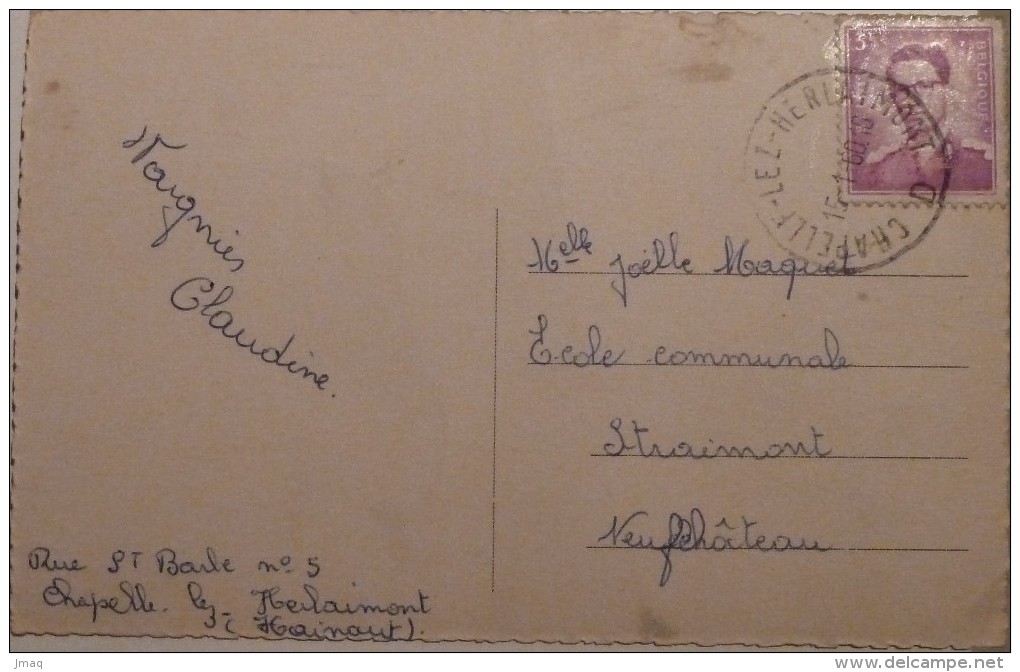 Waugnies
Claudine.
Rue St Barle no 5
Chapelle-lez-Herlaimont
(Hainaut).
3F
BELGIQUE
CHAPELLE-LEZ-HERLAIMONT
D
Melle Joëlle Maquet
Ecole communale
Straimont
Neufchâteau
jmaq
http://www.delcampe.net